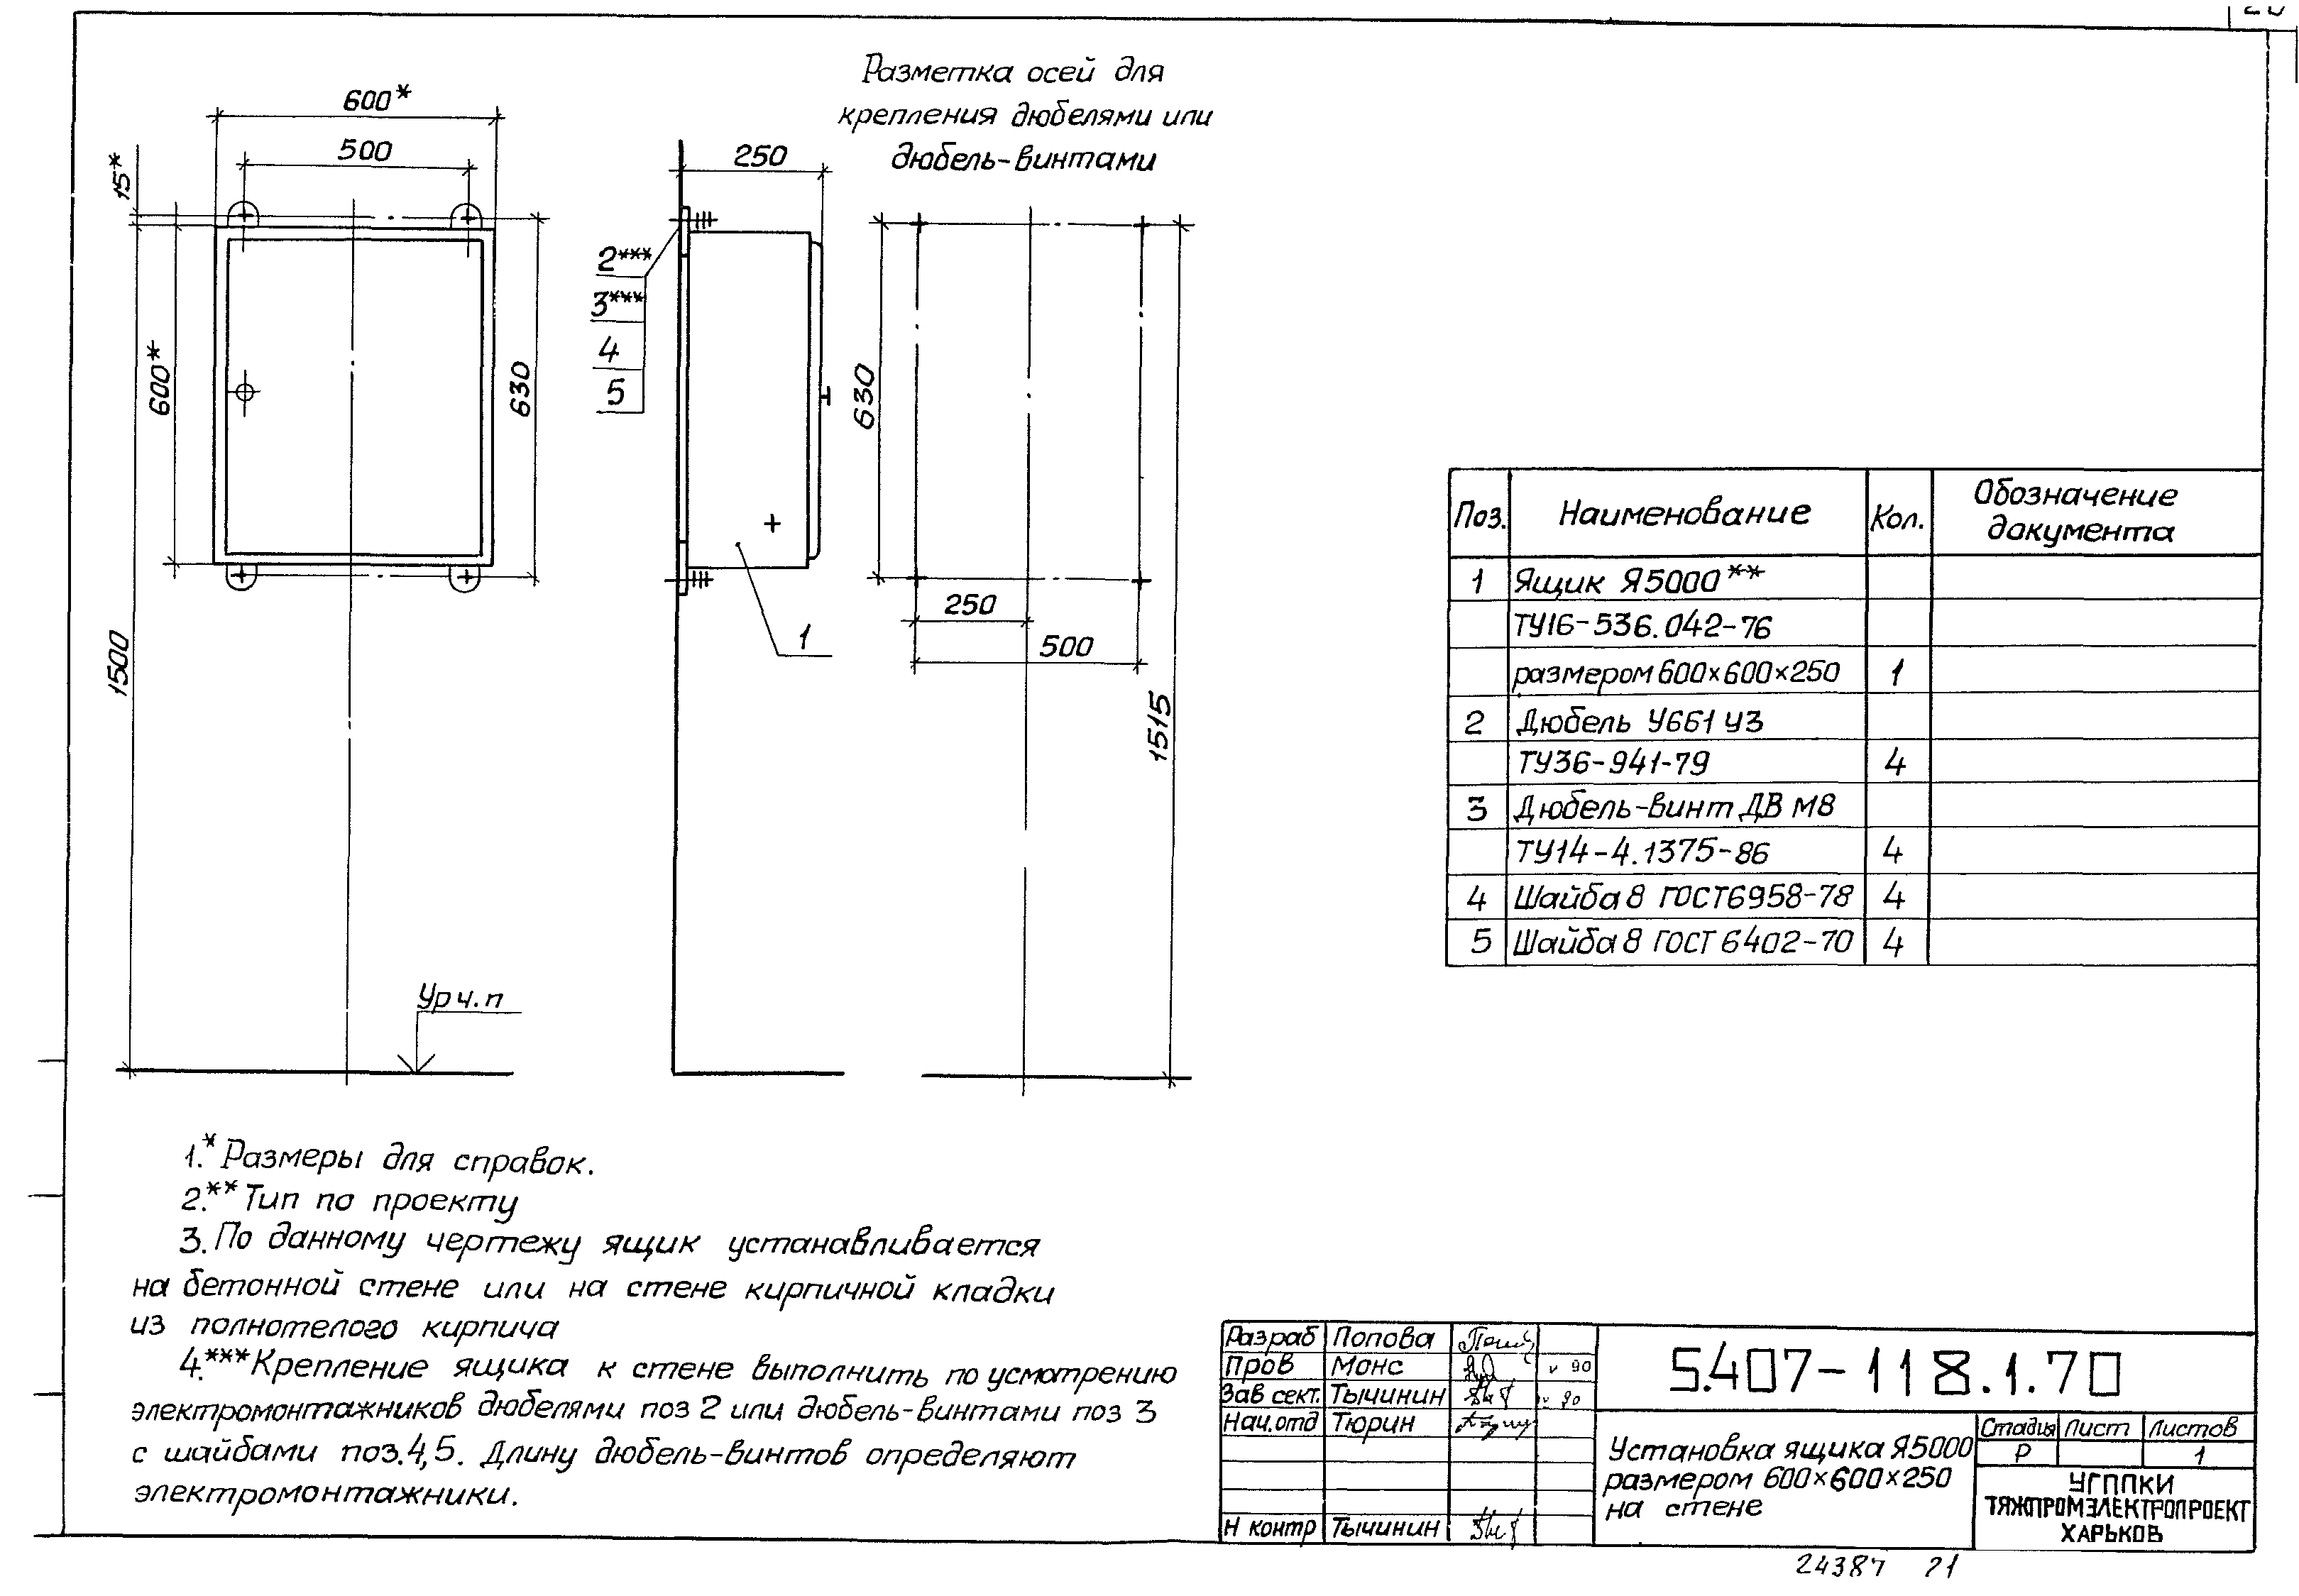 Разметка осей для
крепления дюбелями или
дюбель-винтами
600*
500
15*
600*
630
1500
Ур ч.п
250
2***
3***
4
5
1
630
250
500
1515
Поз. Наименование Кол. Обозначение документа
1 Ящик Я5000**
ТУ16-536.042-76
размером 600×600×250 1
2 Дюбель У661 У3
ТУ36-941-79 4
3 Дюбель-винт ДВ М8
ТУ14-4.1375-86 4
4 Шайба 8 ГОСТ6958-78 4
5 Шайба 8 ГОСТ 6402-70 4
1.* Размеры для справок.
2.** Тип по проекту
3. По данному чертежу ящик устанавливается
на бетонной стене или на стене кирпичной кладки
из полнотелого кирпича
4.*** Крепление ящика к стене выполнить по усмотрению
электромонтажников дюбелями поз 2 или дюбель-винтами поз 3
с шайбами поз.4,5. Длину дюбель-винтов определяют
электромонтажники.
Разраб Попова
Пров Монс v 90
Зав сект. Тычинин v 90
Нач.отд Тюрин
Н контр Тычинин
5.407-118.1.70
Установка ящика Я5000
размером 600×600×250
на стене
Стадия Лист Листов
Р 1
УГППКИ
ТЯЖПРОМЭЛЕКТРОПРОЕКТ
ХАРЬКОВ
24387 21